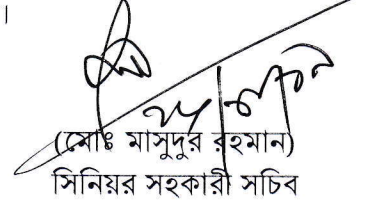 ।
(মোঃ মাসুদুর রহমান)
সিনিয়র সহকারী সচিব